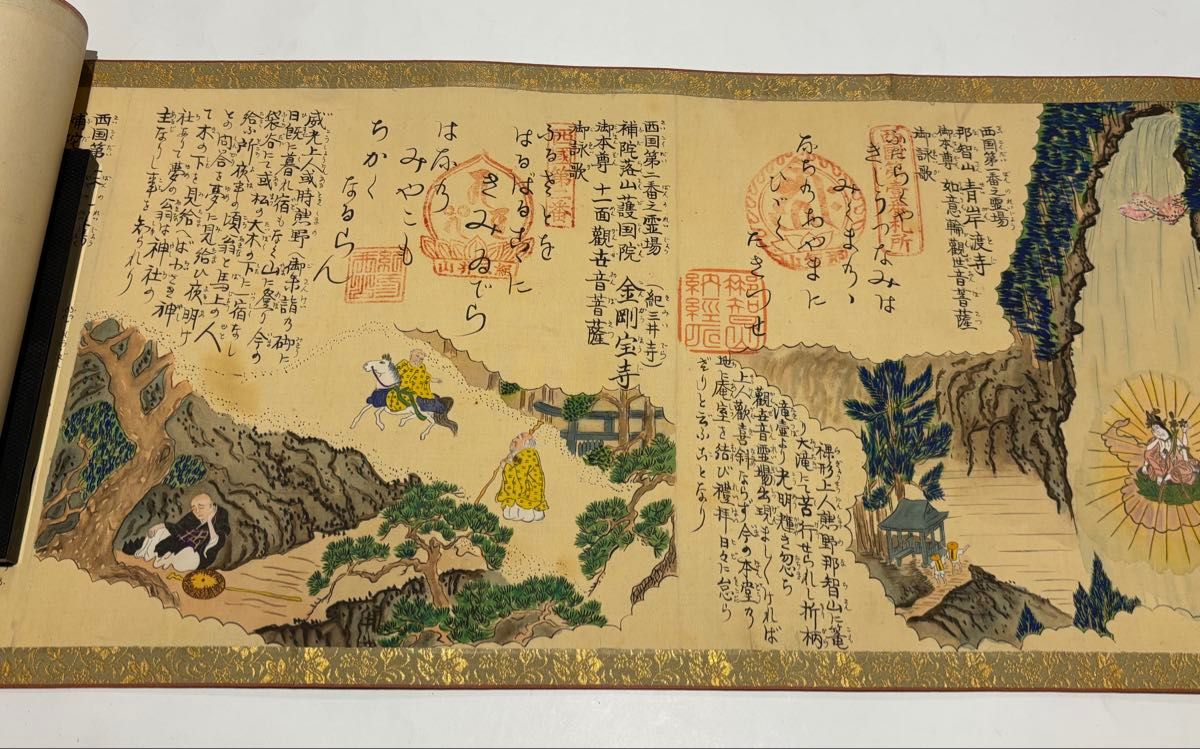 西国第一番之霊場
那智山 青岸渡寺
御本尊 如意輪観世音菩薩
御詠歌
ふだらくや
きしうつなみは
みくまのゝ
なちのおやまに
ひびく
たきつせ
那智山
納経所
裸形上人熊野那智山に篭
り大滝にて苦行せられし折柄
滝壷より光明輝き忽ち
観音霊場出現ましましければ
上人歓喜斜ならず今の本堂の
地に庵室を結び禮拝日々に怠ら
ざりと云ふことなり
西国第二番之霊場 (紀三井寺)
補陀落山護国院 金剛宝寺
御本尊 十一面観世音菩薩
御詠歌
西國第二番
ふるさとを
はるばるこゝに
きみゐでら
はなの
みやこも
ちかく
なるらん
威光上人或時熊野へ御参詣の砌に
日既に暮れ宿もなく山に登り今の
袋谷にて或松の大木の下に一宿なし
給ふ所夜半の頃翁と馬上の人
との問答を夢に見給ひ夜明け
て木の下を見給へば小さき神
社ありて夢の翁は神社の
主なりし事を知られり
西国第